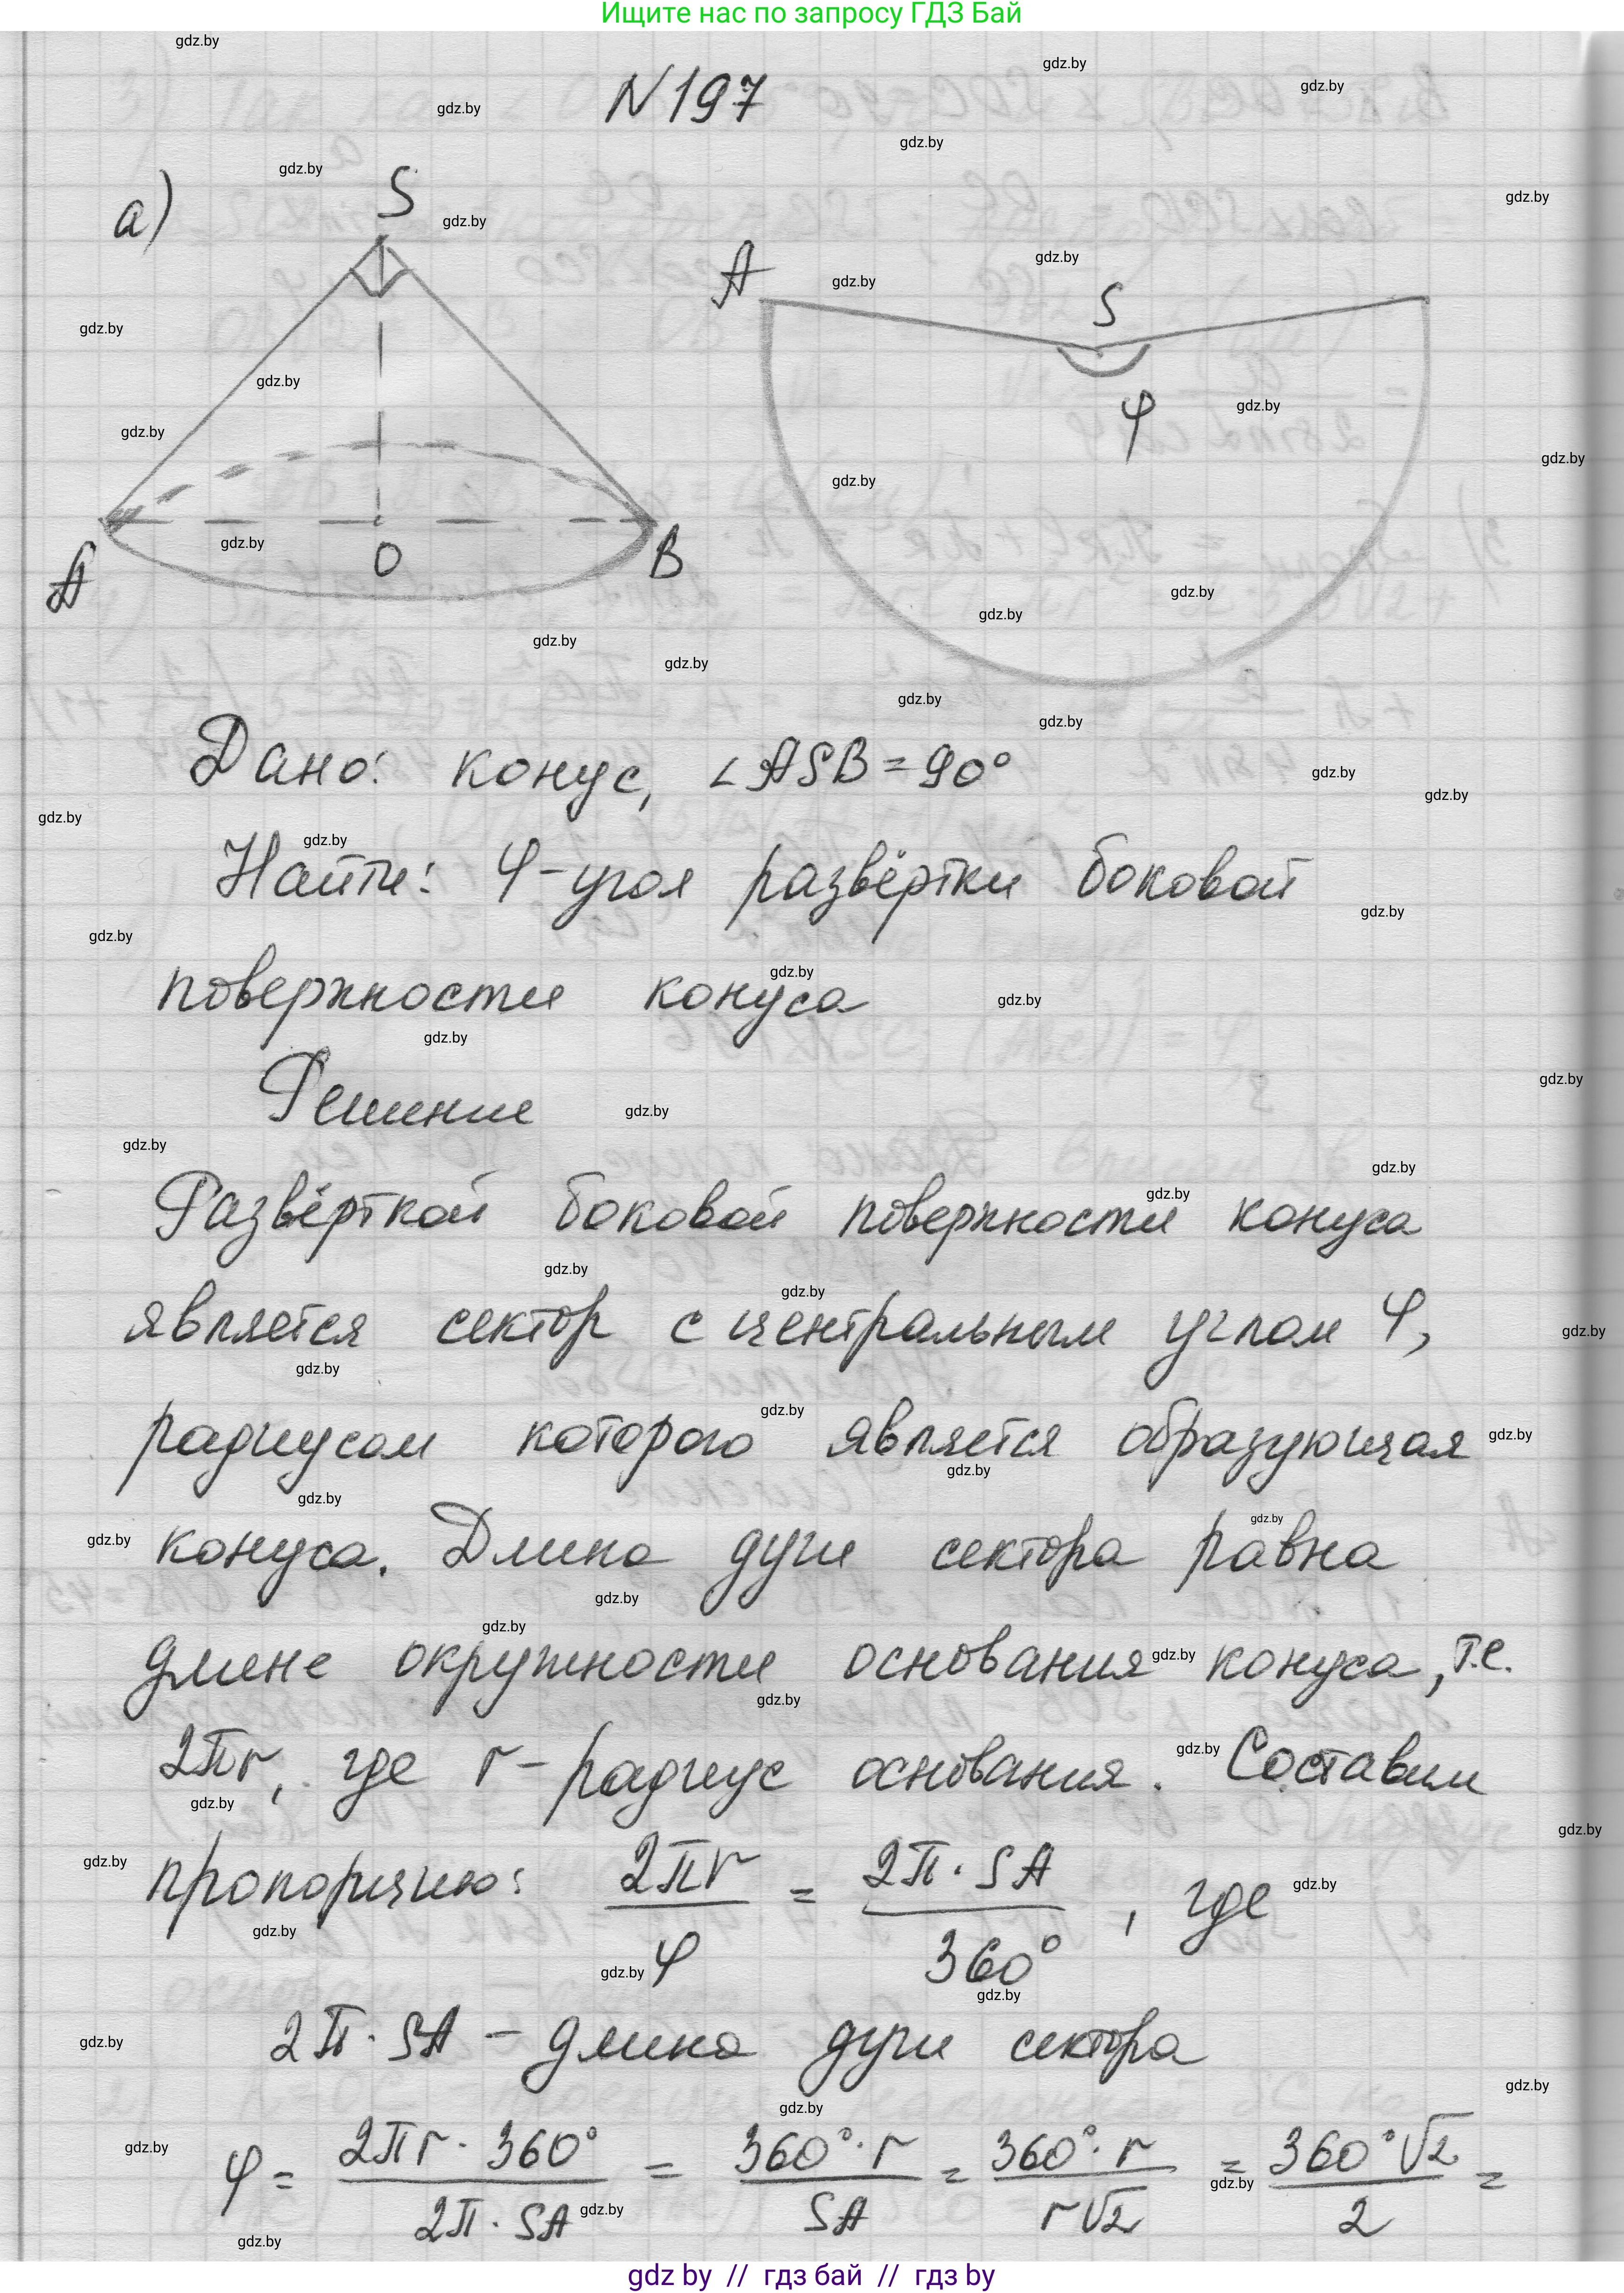 Ищите нас по запросу ГДЗ Бай
N197
а)
S
A
O
B
A
S
φ
Дано: конус, ∠ASB = 90°
Найти: φ - угол развёртки боковой
поверхности конуса
Решение
Развёрткой боковой поверхности конуса
является сектор с центральным углом φ,
радиусом которого является образующая
конуса. Длина дуги сектора равна
длине окружности основания конуса, т.е.
2πr, где r - радиус основания. Составим
пропорцию: 2πr/φ = 2π·SA/360°, где
2π·SA - длина дуги сектора
φ = 2πr·360°/2π·SA = 360°·r/SA = 360°·r/r√2 = 360°√2/2 =
gdz by // гдз бай // гдз by